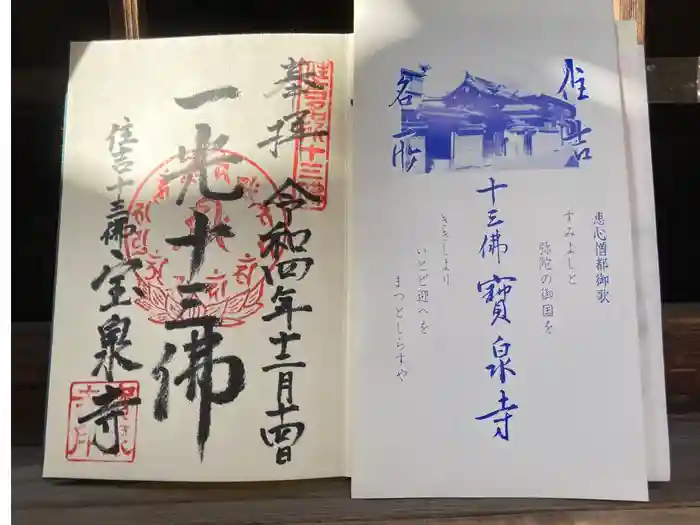 奉拝
令和四年十二月十四日
一光十三佛
住吉十三佛
宝泉寺
住吉
名所
十三佛 寶泉寺
恵心僧都御歌
すみよしと
弥陀の御国を
ききしより
いとど迎へを
まつとしらすや